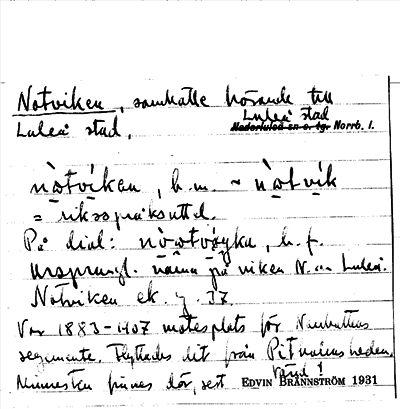 Notviken, samhälle hörande till
Luleå stad,
Luleå stad
Nederluleå sn o. tgr Norrb. l.
nòtvíken, b. m. ~ nòtvik
= riksspråksuttal.
På dial:
ursprungl. namn på viken N. om Luleå.
Notviken ek.
Var 1883-1907 mötesplats för Norrbottens
regemente. Flyttades dit från Pitholmsheden.
Vänd!
Minnessten finnes där, rest
EDVIN BRÄNNSTRÖM 1931